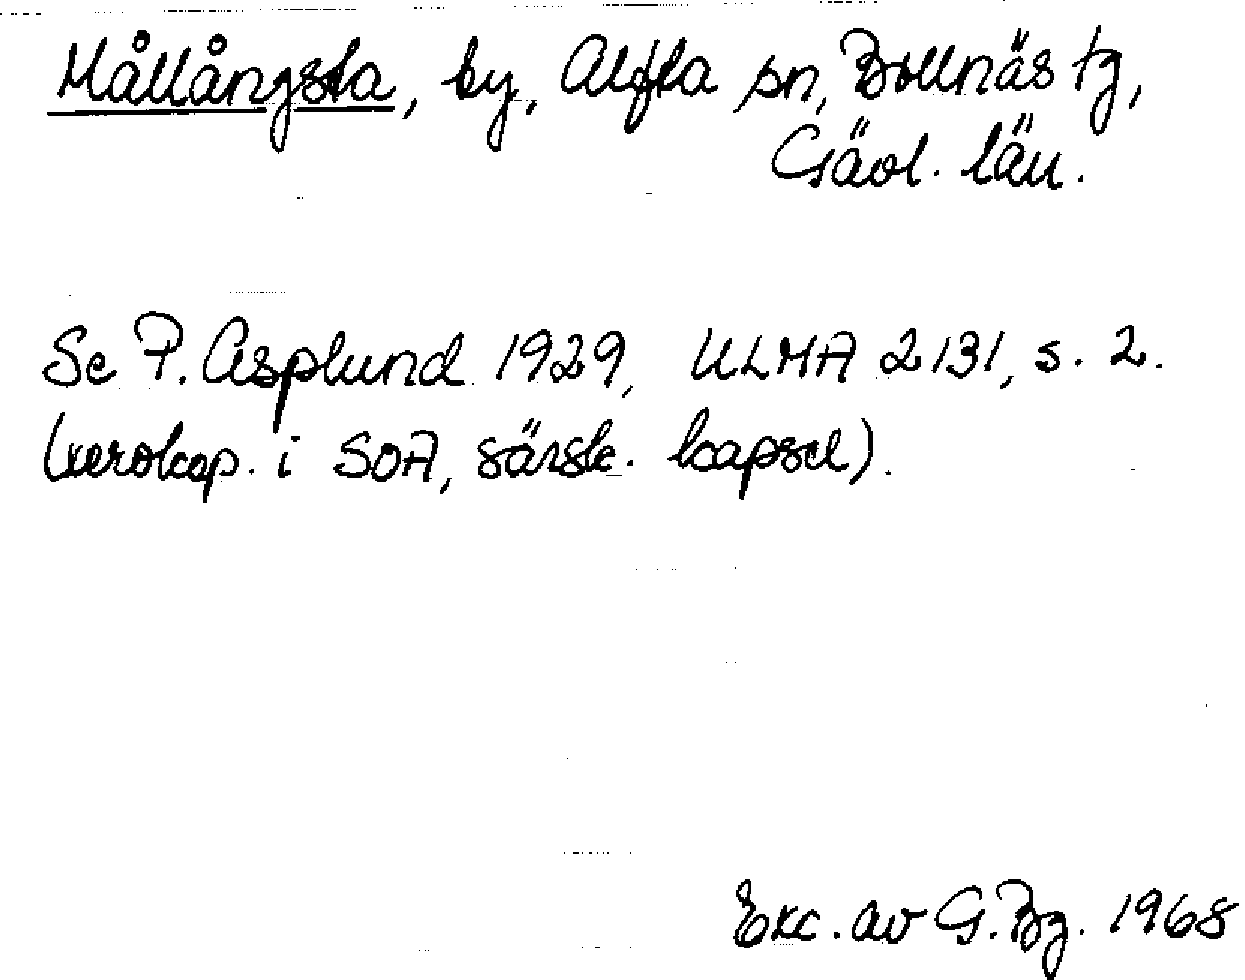 Mållångsta, by, Alfta sn, Bollnäs tg,
Gävl. län.
Se P. Asplund 1929, ULMA 2131, s. 2.
(xerokop. i SOA, särsk. kapsel).
Exc. av G. Bg. 1968